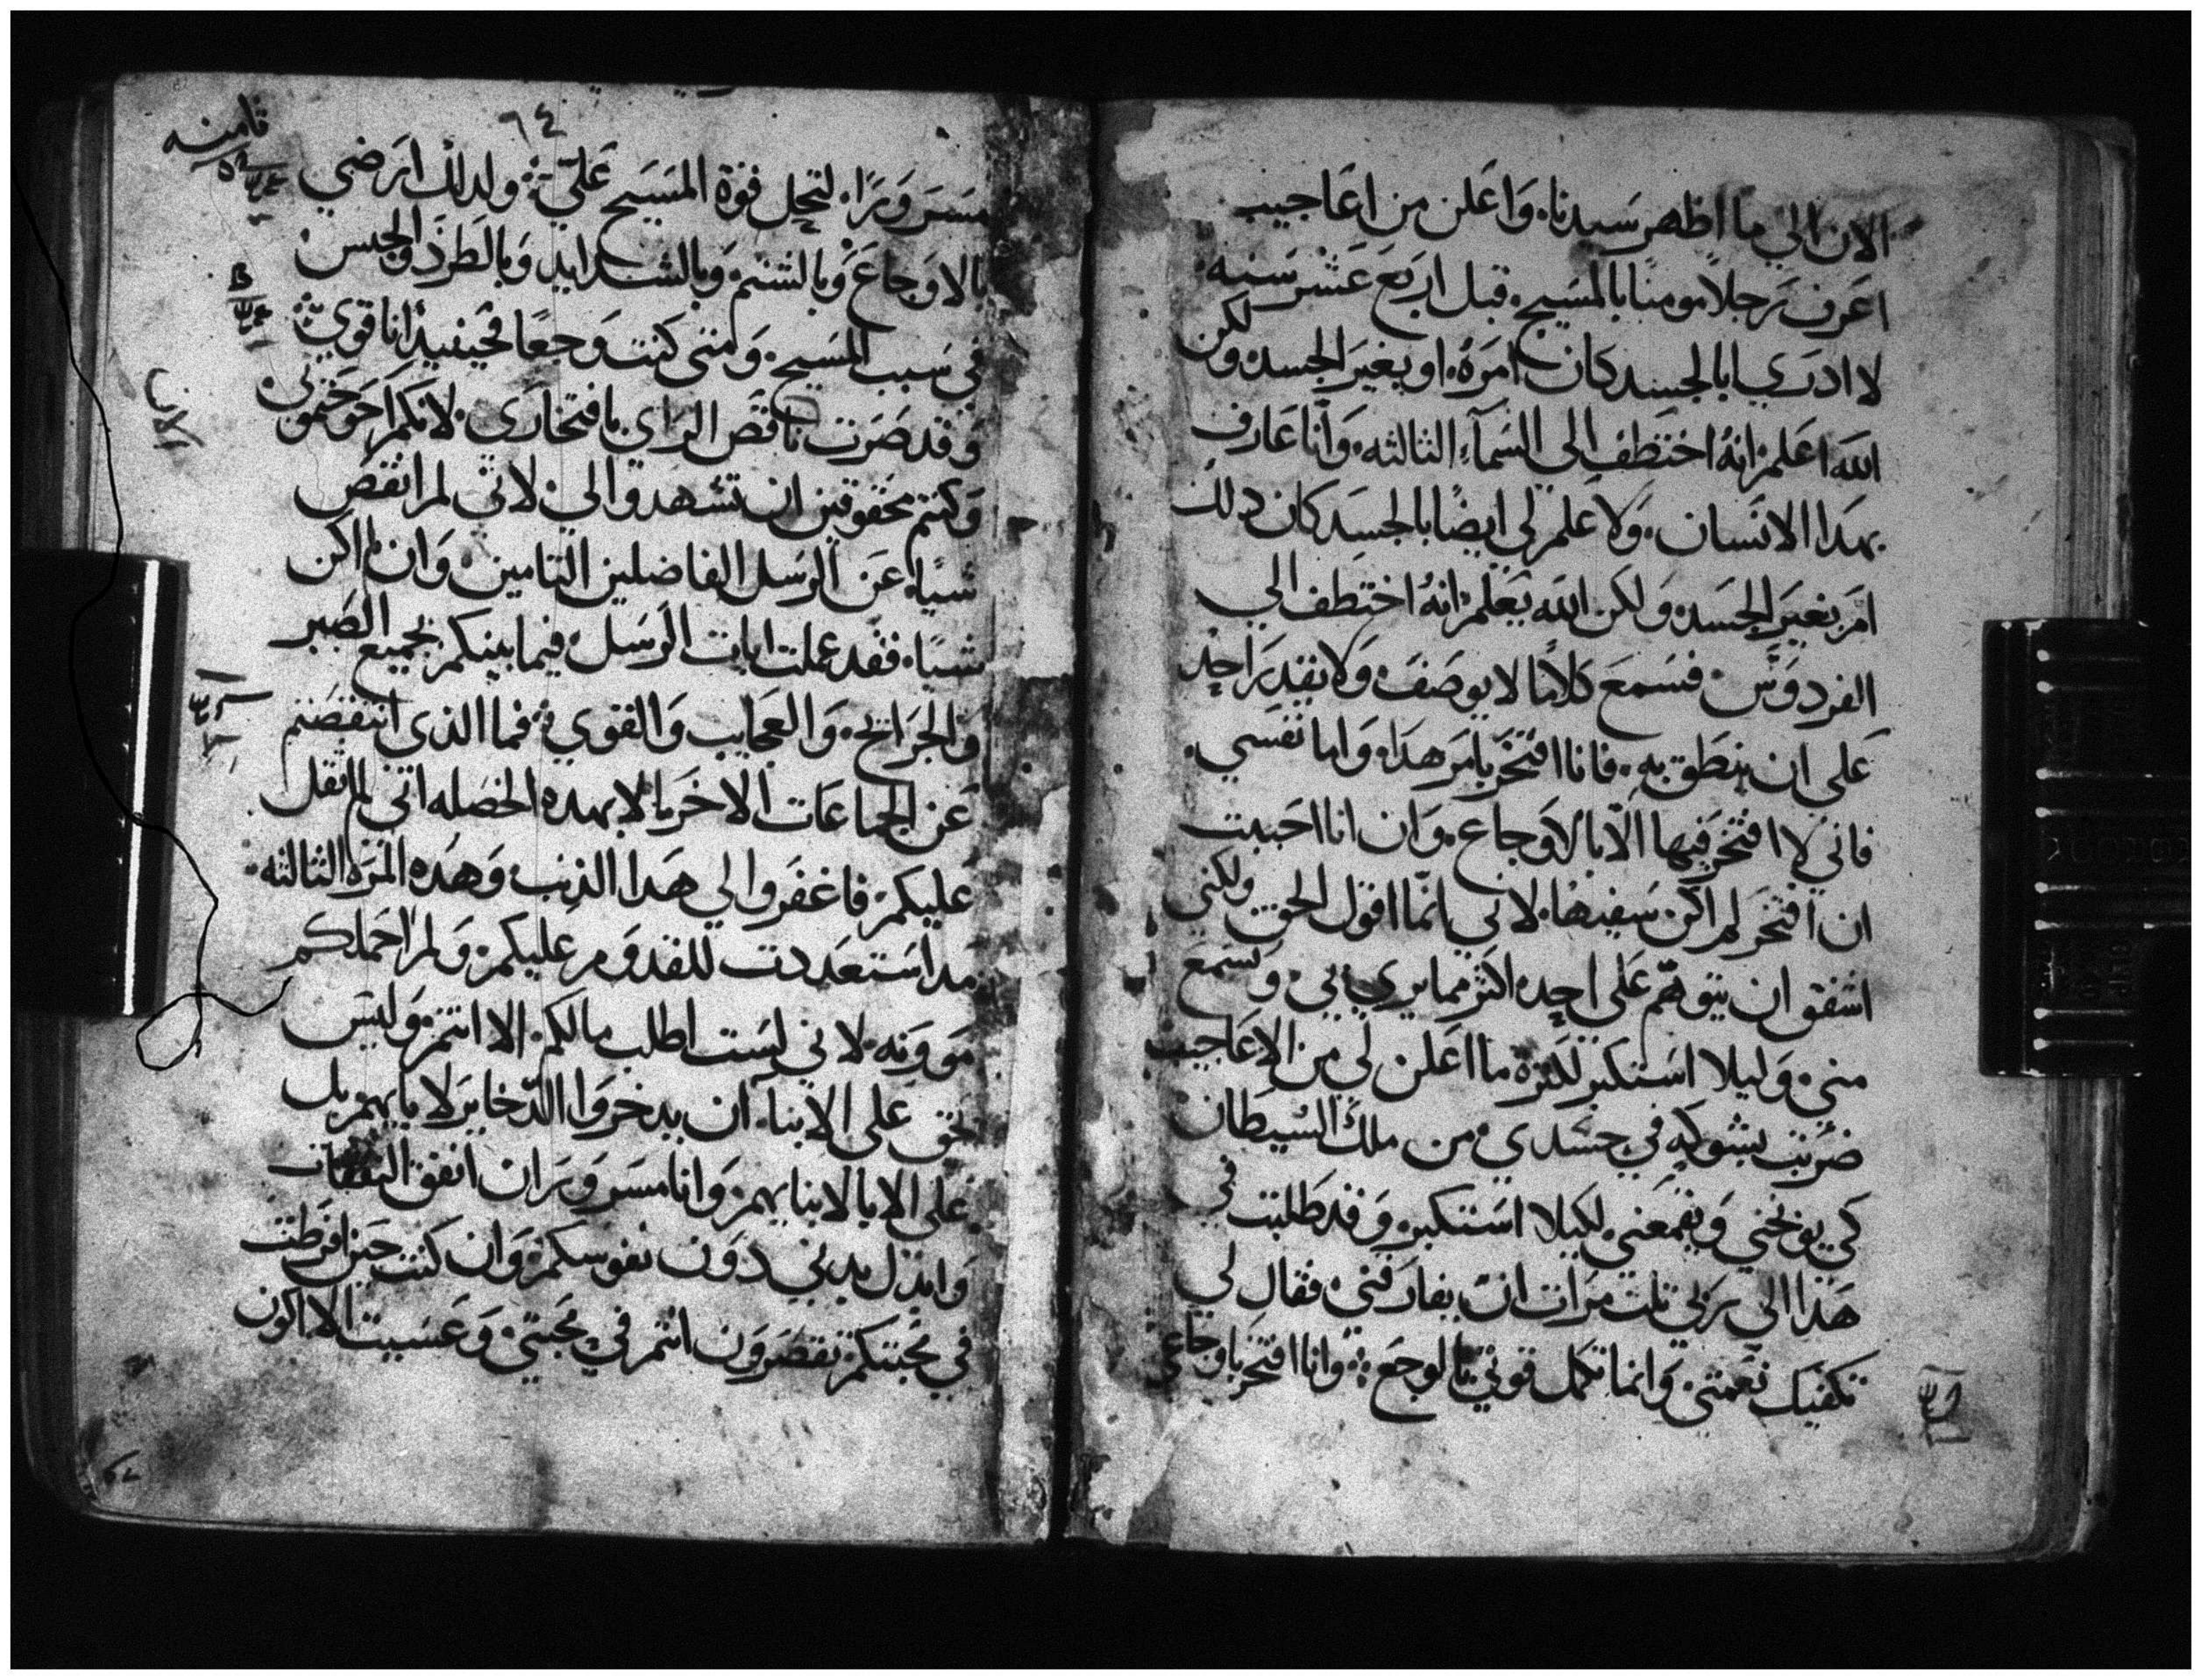 الان الي ما اظهر سيدنا، وَاعَلن من اعَاجيب
اعَرف رَجلاً مومنًا بالمسَيح، قبل اربَع عَشر سَنه.
لا ادرَي ابالجسد كان امرَهُ، او بغيرَ الجسد، ولكن
الله اعَلم، انهُ اختطف الي السَمآء الثالثه، وَانا عَارف
بهدَا الانسَان، وَلا عَلم لي ايضًا بالجسَد كان دلك
امَر بغيرَ الجسَد، وَلكن الله يعَلم، انهُ اختطف الي
الفردوَس، فسَمعَ كلامًا لا يوصَف، وَلا يقدرَ احد
عَلي ان ينطق به، فانا افتخرَ بامرَ هدَا، وَاما نفسَي.
فاني لا افتخرَ فيها الاّ بالاوَجاع، وَان انا احَببت
ان افتخرَ لم اكن سَفيهًا، لاني انمّا اقول الحق، ولكني
اشفق ان يتوهّم عَلي احد، اكثر مما يري بي، وَيسَمع
مني، وَليلا استكبر لكثرة ما اعَلن لي من الاعَاجيب
ضرُبت بشوكهٍ في جسَدي، من ملك السيطان
كي يوبخني وَيقمعَني، لكيلا استكبر، وَقد طلبت في
هَذا الي رَبي تلت مرَات ان يفارَقني، فقال لي
تكفيك نعَمتي، وَانما تكمل قوتي بالوجعَ ܀ وَانا افتخرَ باوجاعي
٦٤
ثامنه
مسَروَرًا، لتحل قوة المسَيح عَليّ ܀ ولدلك ارَضي
بالاوَجاعَ، وَبالشتم، وَبالشدايد، وَبالطرَد والحبس
في سَبب المسَيح، وَمتي كنت وَجعًا فحَينيدٍ انا قوي ܀
وَقد صَرت ناقصَ الرَاي بافتخارَي، لانكم احَوَجتموني
وَكنتم محَقوقين ان تشهدوا لي، لاني لم انقصَ
شيًا، عَن الرسَل الفاضلين التامين، وَان لم اكن
شيًا، فقد عَملت ايات الرَسَل، فيما بينكم بجميع الصَبر
وَالجرَايح، وَالعجايب وَالقوي ܀ فما الذي انتقصَتم
عَن الجماعَات الاخرَ، الا بهده الخصَله، اني لم اثقل
عَليكم، فاغفرَوا لي هَدا الذنب، وَهَده المرَة الثالثه.
مد استعَددت للقدوَم عَليكم، وَلم احَملكم
موَونه، لاني لسَت اطلب مالكم، الا انتم، وَليسَ
يحق عَلي الابنا، ان يدخروَا الدّخايرَ لابايهم، بل
علي الابا لابنايهم، وَانا مسَروَرَ ان انفق النفقات
وَابدل بدني دوَن نفوسكم، وَان كنت حَين افرَطت
في محَبتكم، تقصَروَن انتم في محَبتي، وَعَسَيت الا اكون